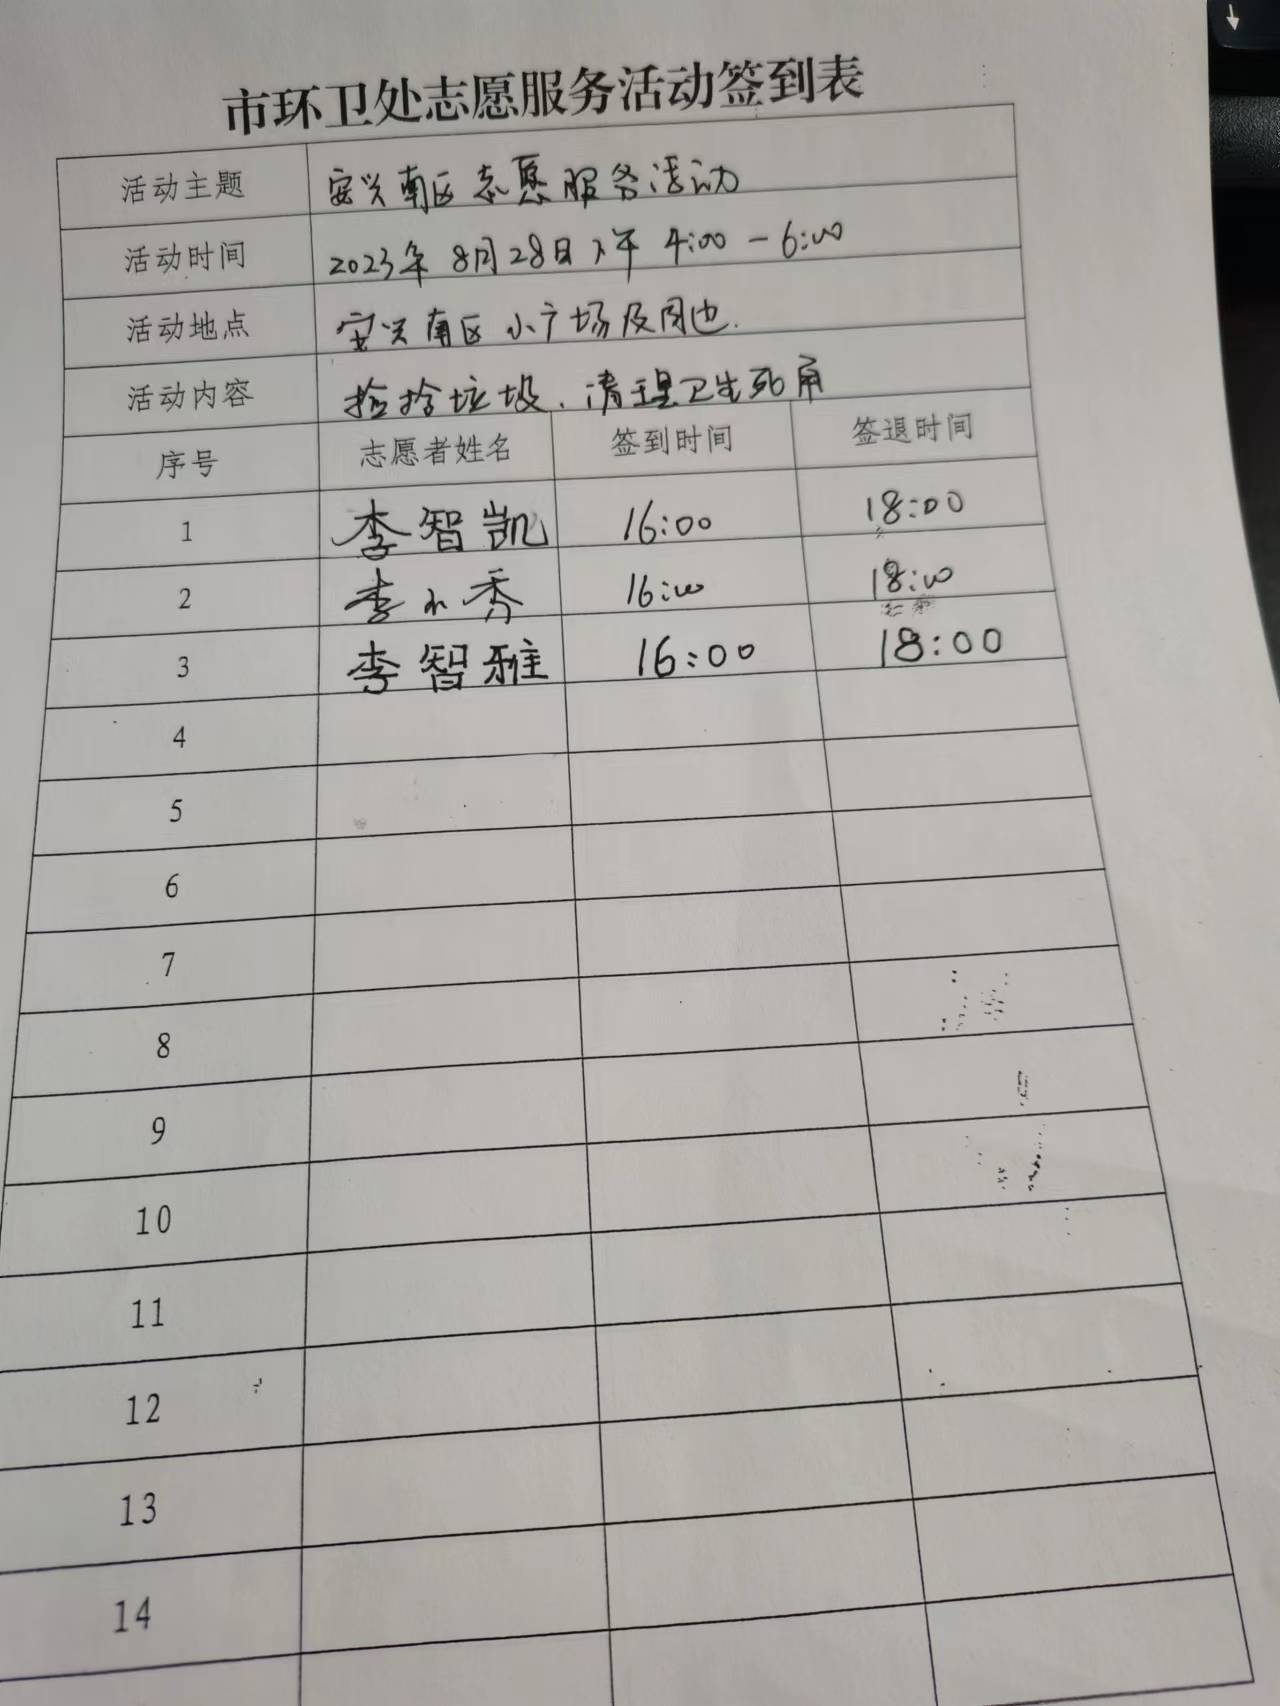 市环卫处志愿服务活动签到表
活动主题 安兴南区志愿服务活动
活动时间 2023年8月28日下午4:00-6:00
活动地点 安兴南区小广场及周边.
活动内容 捡拾垃圾、清理卫生死角
序号 志愿者姓名 签到时间 签退时间
1 李智凯 16:00 18:00
2 李小秀 16:00 18:00
3 李智雅 16:00 18:00
4
5
6
7
8
9
10
11
12
13
14